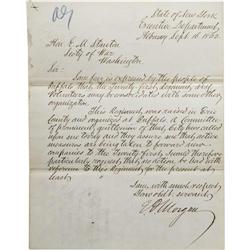 State of New York
Executive Department,
Albany Sept. 16. 1862.
Hon. E. M. Stanton
Secty of War
Washington
Sir:
Some fear is expressed by the people of
Buffalo that the Twenty-First Regiment of
Volunteers may be consolidated with some other
organization.
This Regiment was raised in Erie
County and organized at Buffalo. A Committee
of prominent gentlemen of that city have called
upon me today and they assure me that active
measures are being taken to forward new
companies to the Twenty-First and therefore
particularly request that no action be had with
reference to this Regiment for the present at
least.
I am, with much respect,
Your obdt. servant
E. D. Morgan